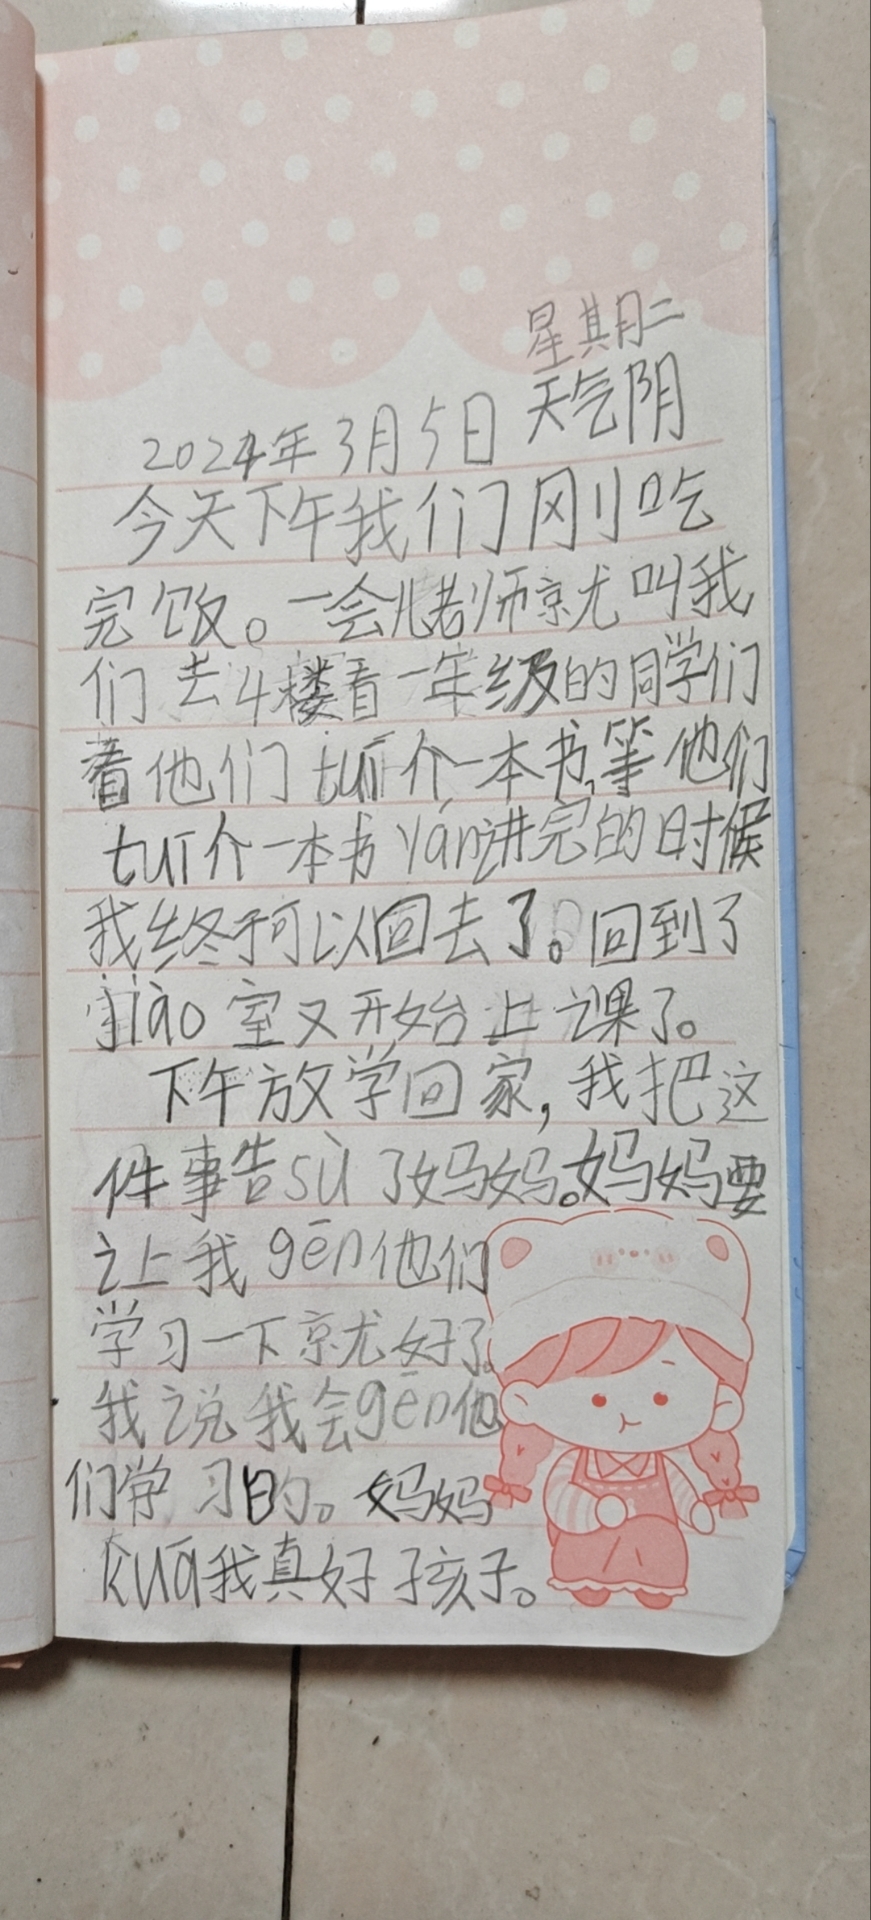 星期二
2024年3月5日 天气阴
今天下午我们刚吃
完饭。一会儿老师就叫我
们去4楼看一年级的同学们
看他们tuī介一本书,等他们
tuī介一本书yǎn讲完的时候
我终于可以回去了。回到了
jiào室又开始上课了。
下午放学回家,我把这
件事告sù了妈妈。妈妈要
让我gēn他们
学习一下就好了。
我说我会gēn他
们学习的。妈妈
kuā我真好子孩子。